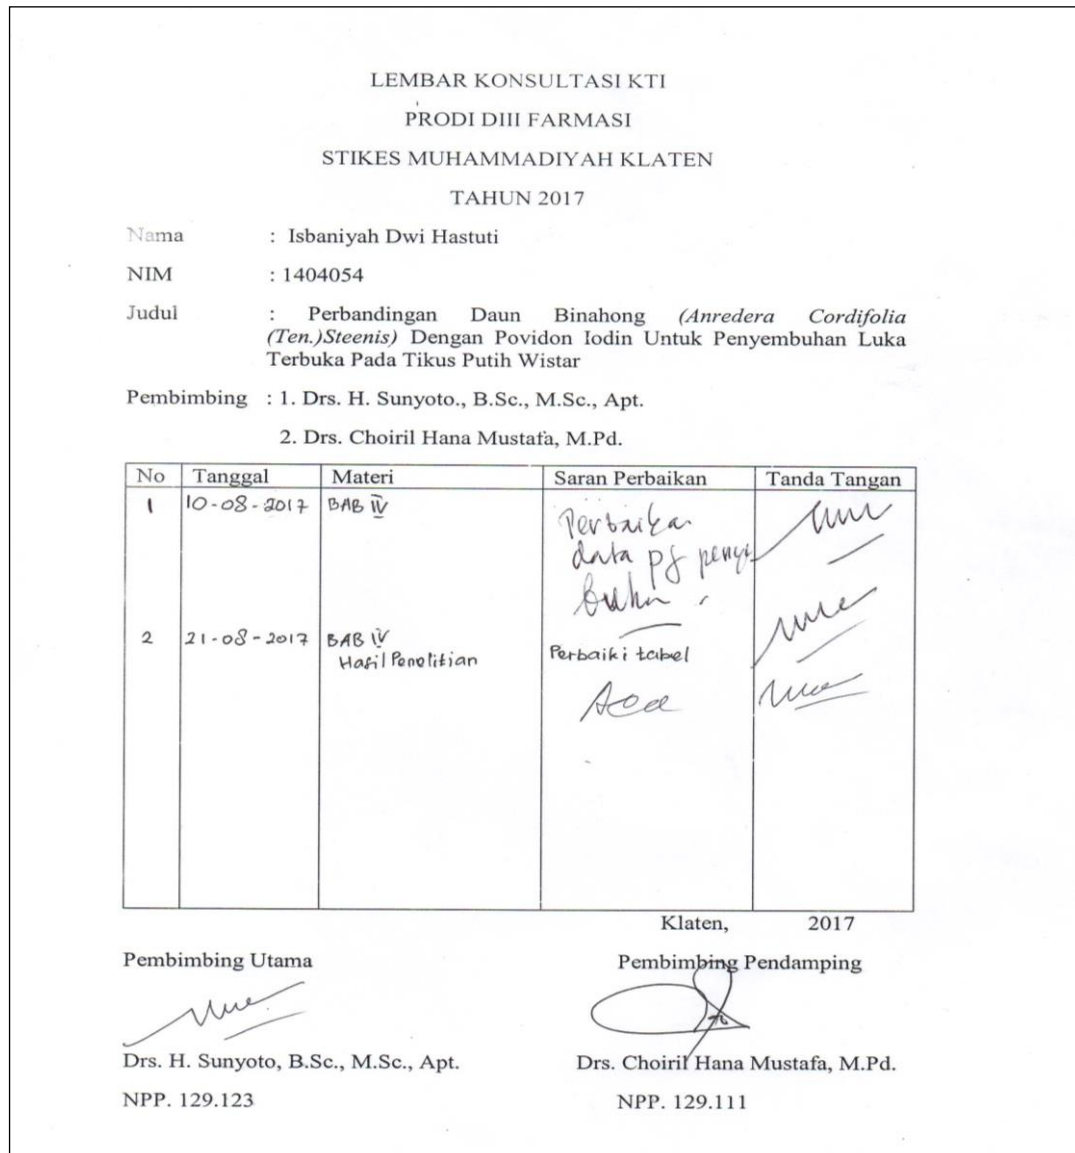 LEMBAR KONSULTASI KTI
PRODI DIII FARMASI
STIKES MUHAMMADIYAH KLATEN
TAHUN 2017
Nama : Isbaniyah Dwi Hastuti
NIM : 1404054
Judul : Perbandingan Daun Binahong (Anredera Cordifolia
(Ten.)Steenis) Dengan Povidon Iodin Untuk Penyembuhan Luka
Terbuka Pada Tikus Putih Wistar
Pembimbing : 1. Drs. H. Sunyoto., B.Sc., M.Sc., Apt.
2. Drs. Choiril Hana Mustafa, M.Pd.
No Tanggal Materi Saran Perbaikan Tanda Tangan
1 10-08-2017 BAB IV
data
2 21-08-2017 BAB IV
Hasil Penelitian Perbaiki tabel
Klaten, 2017
Pembimbing Utama Pembimbing Pendamping
Drs. H. Sunyoto, B.Sc., M.Sc., Apt. Drs. Choiril Hana Mustafa, M.Pd.
NPP. 129.123 NPP. 129.111